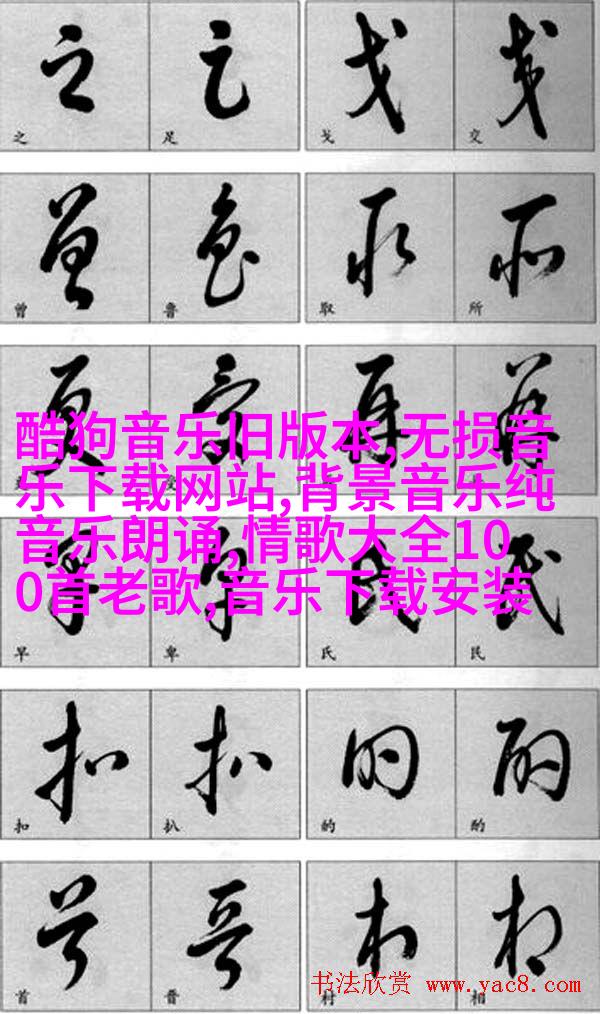 之 足 戈 交
曾 鲁 取 所
酷狗音乐旧版本,无损音
乐下载网站,背景音乐纯
音乐朗诵,情歌大全10
0首老歌,音乐下载安装
早 卑 氏 民
扣 扒 的 酌
首 晋 村 相
书法欣赏 www.yac8.com